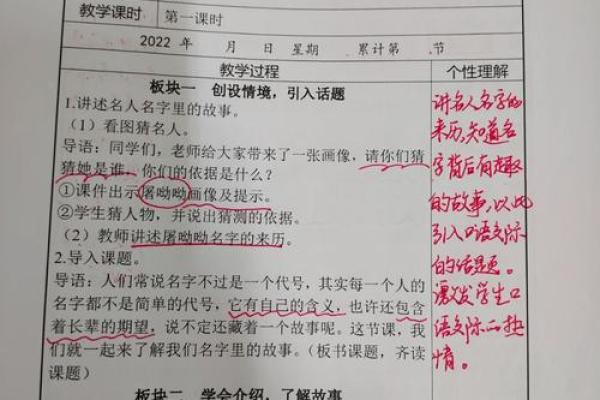 教学课时 第一课时
2022 年 月 日 星期 累计第 节
教学过程 个性理解
板块一 创设情境，引入话题
1.讲述名人名字里的故事。
（1）看图猜名人。
导语：同学们，老师给大家带来了一张画像，请你们猜
猜她是谁，你们的依据是什么？
①课件出示屠呦呦画像及提示。
②学生猜人物，并说出猜测的依据。
（2）教师讲述屠呦呦名字的来历。
2.导入课题。
导语：人们常说名字不过是一个代号，其实每一个人的
名字都不是简单的代号，它有自己的含义，也许还包含
着长辈的期望，说不定还藏着一个故事呢。这节课，我
们就一起来了解我们名字里的故事。（板书课题，齐读
课题）
板块二 学会介绍，了解故事
讲名人名字的
来历，知道名
字背后有趣
的故事，以此
引入口语交际
的话题。
激发学生口
语交际的热
情。